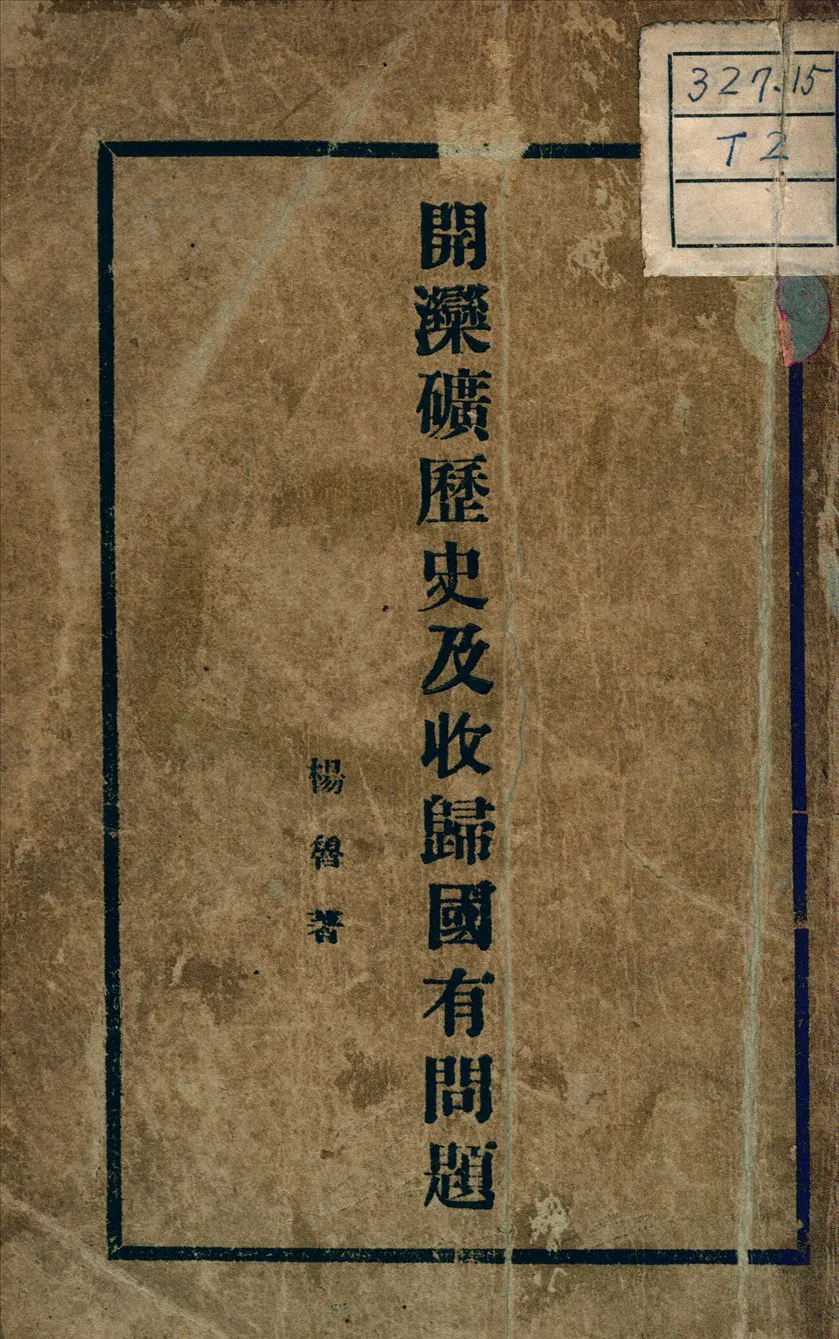 327.15
T2
開灤礦歷史及收歸國有問題
楊魯著